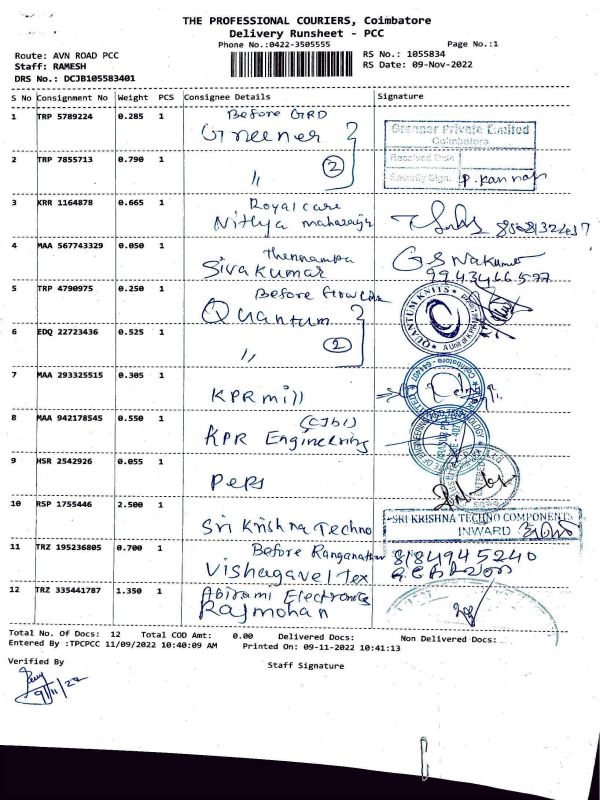 THE PROFESSIONAL COURIERS, Coimbatore
Delivery Runsheet - PCC
Phone No.:0422-3505555
Page No.:1
Route: AVN ROAD PCC
RS No.: 1055834
Staff: RAMESH
RS Date: 09-Nov-2022
DRS No.: DCJB105583401
S No Consignment No Weight PCS Consignee Details Signature
1 TRP 5789224 0.285 1 Before GRD
Greener
Greener Private Limited
Coimbatore
Received Date
2 TRP 7855713 0.790 1 " 2
Security Sign. P. Kannan
3 KRR 1164878 0.665 1 Royal care
Nithya maharaja
4 MAA 567743329 0.050 1 Thennampa
Sivakumar
G S Vakumar
9943466577
5 TRP 4790975 0.250 1 Before flow Link
Quantum
QUANTUM KNITS
6 EDQ 22723436 0.525 1 " 2
7 MAA 293325515 0.305 1
KPR mill
8 MAA 942178545 0.550 1 (CJB1)
KPR Engineering
9 HSR 2542926 0.055 1
Peps
10 RSP 1755446 2.500 1
Sri Krishna Techno
SRI KRISHNA TECHNO COMPONENTS
INWARD
11 TRZ 195236805 0.700 1 Before Ranganathar
Vishagavel Tex
8184945240
12 TRZ 335441787 1.350 1 Abirami Electronics
Rajmohan
Total No. Of Docs: 12 Total COD Amt: 0.00 Delivered Docs: Non Delivered Docs:
Entered By :TPCPCC 11/09/2022 10:40:09 AM Printed On: 09-11-2022 10:41:13
Verified By
Staff Signature
9/11/22